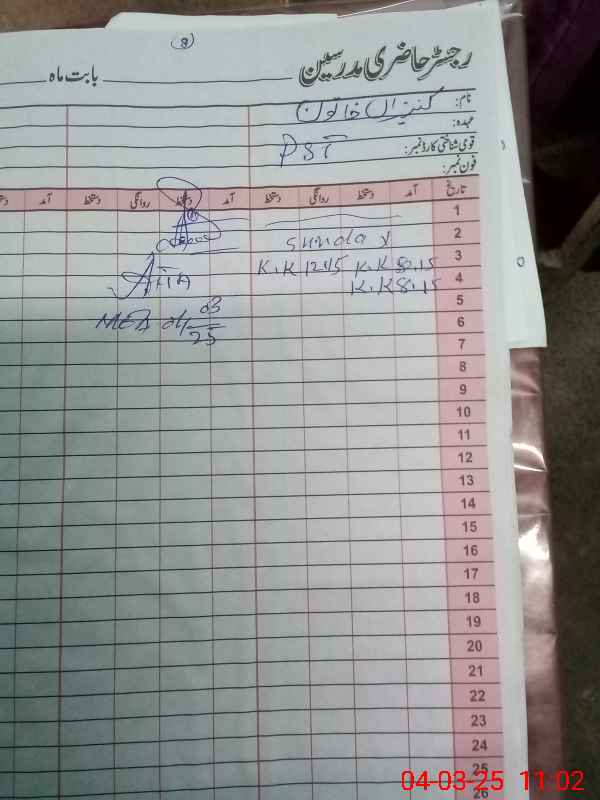 8
رجسٹر حاضری مدرسین
بابت ماہ
نام: کنیزاں خاتون
عہدہ: PST
قومی شناختی کارڈ نمبر:
فون نمبر:
تاریخ آمد دستخط روانگی دستخط آمد دستخط روانگی دستخط آمد
1
2 Sunday
3 K.K 8.15 K.K 1245
4 K.K 8.15
5
6
7
8
9
10
11
12
13
14
15
16
17
18
19
20
21
22
23
24
25
26
MEA 04/03/25
04-03-25 11:02